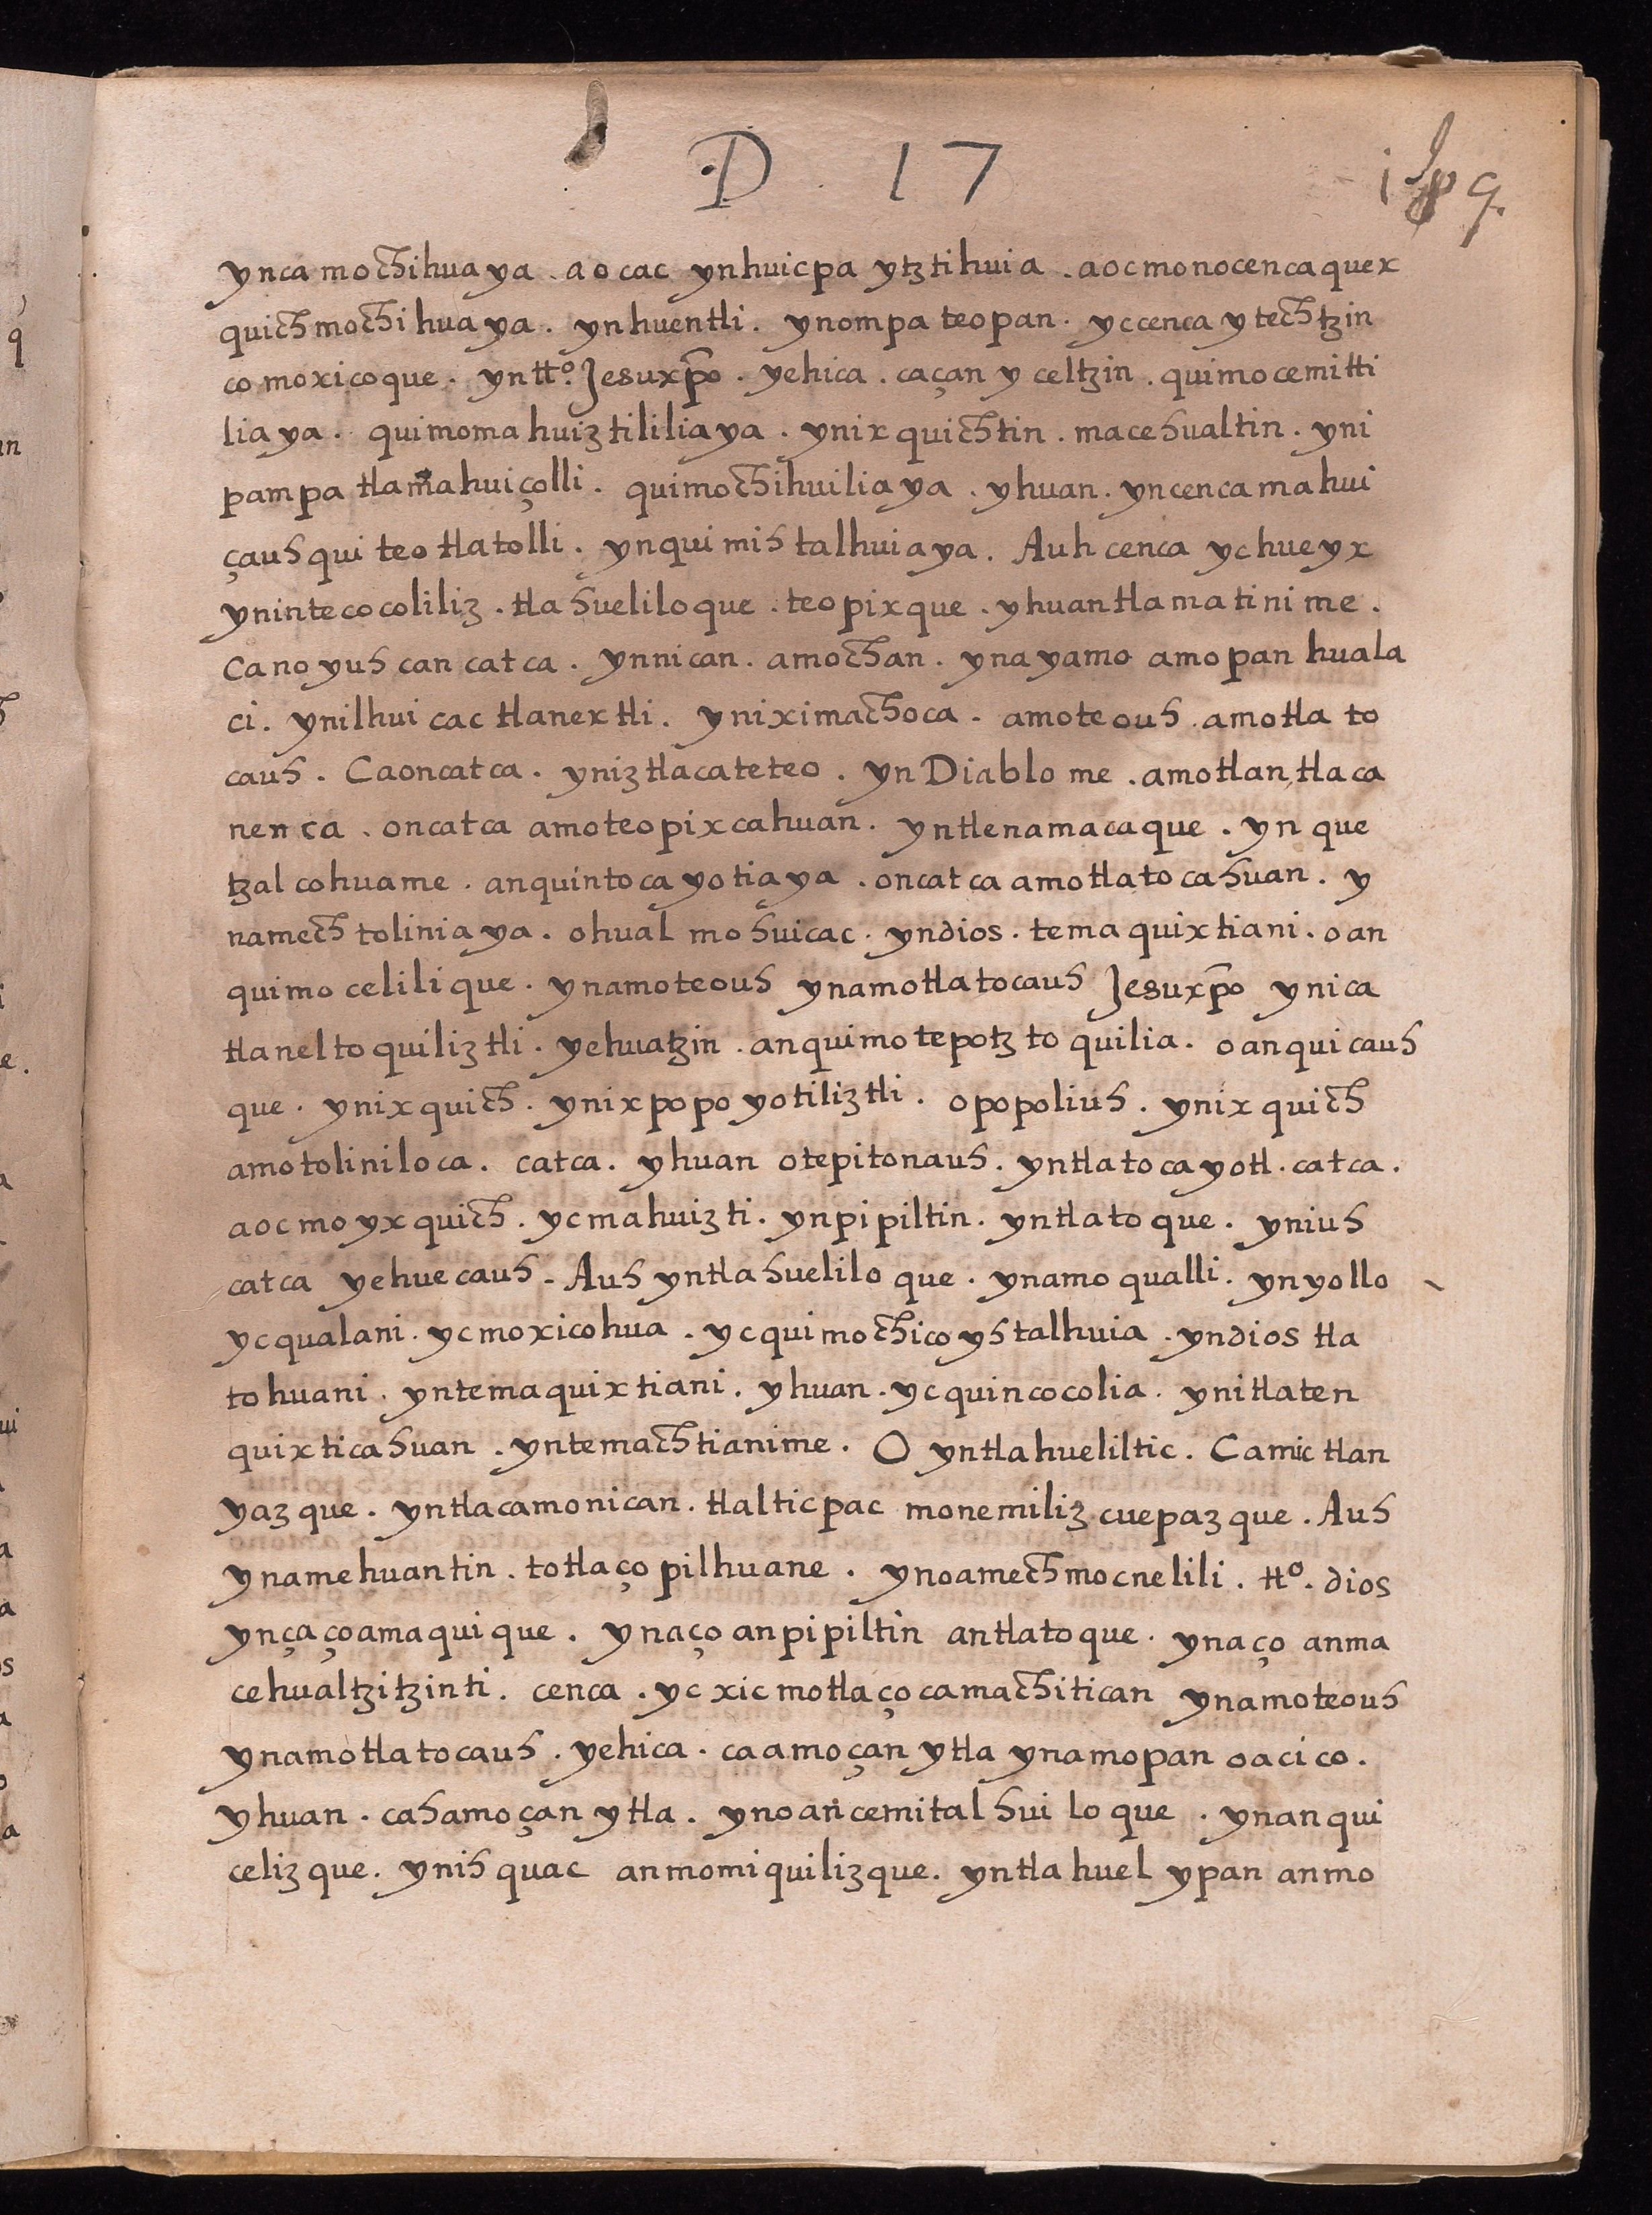 D 17
ynca mochihuaya . aocac ynhuicpa ytztihuia . aocmonocencaquex
quich mochihuaya . ynhuentli . ynompa teopan . yccenca ytechtzin
co moxicoque . yntto. Jesuxpo . yehica . caçan y celtzin . quimocemitti
liaya . quimomahuiztililiaya . ynixquichtin . macehualtin . yni
pampa tlamahuiçolli . quimochihuiliaya . yhuan . yncencamahui
çauhqui teotlatolli . ynquimihtalhuiaya . Auh cenca ychueyx
ynintecocoliliz . tlahueliloque . teopixque . yhuan tlamatinime .
Cano yuhcan catca . ynnican . amochan . ynayamo amopan huala
ci . ynilhuicac tlanextli . yniximachoca . amoteouh . amotlato
cauh . Caoncatca . yniztlacateteo . yn Diablome . amotlan, tlaca
nenca . oncatca amoteopixcahuan . yntlenamacaque . yn que
tzalcohuame . anquintocayotiaya . oncatca amotlatocahuan . y
namech toliniaya . ohualmohuicac . yndios . temaquixtiani . oan
quimocelilique . ynamoteouh ynamotlatocauh Jesuxpo ynica
tlaneltoquiliztli . yehuatzin . anquimotepotztoquilia . oanquicauh
que . ynixquich . ynixpopoyotiliztli . opopoliuh . ynixquich
amotoliniloca . catca . yhuan otepitonauh . yntlatocayotl . catca .
aocmo yxquich . ycmahuizti . ynpipiltin . yntlatoque . yniuh
catca yehuecauh . Auh yntlahueliloque . ynamo qualli . ynyollo
ycqualani . ycmoxicohua . ycquimochicoyhtalhuia . yndios tla
tohuani . yntemaquixtiani . yhuan . ycquincocolia . ynitlaten
quixticahuan . yntemachtianime . O yntlahueliltic . Camictlan
yazque . yntlacamonican . tlalticpac monemiliz cuepazque . Auh
ynamehuantin . totlaçopilhuane . ynoamechmocnelili . tto. dios
ynçaçoamaquique . ynaço anpipiltin antlatoque . ynaço anma
cehualtzitzinti . cenca . yc xic motlaçocamachitican ynamoteouh
ynamotlatocauh . yehica . caamoçan ytla ynamopan oacico .
yhuan . cahamoçan ytla . ynoancemitalhuiloque . ynanqui
celizque . ynihquac anmomiquilizque . yntlahuel ypan anmo